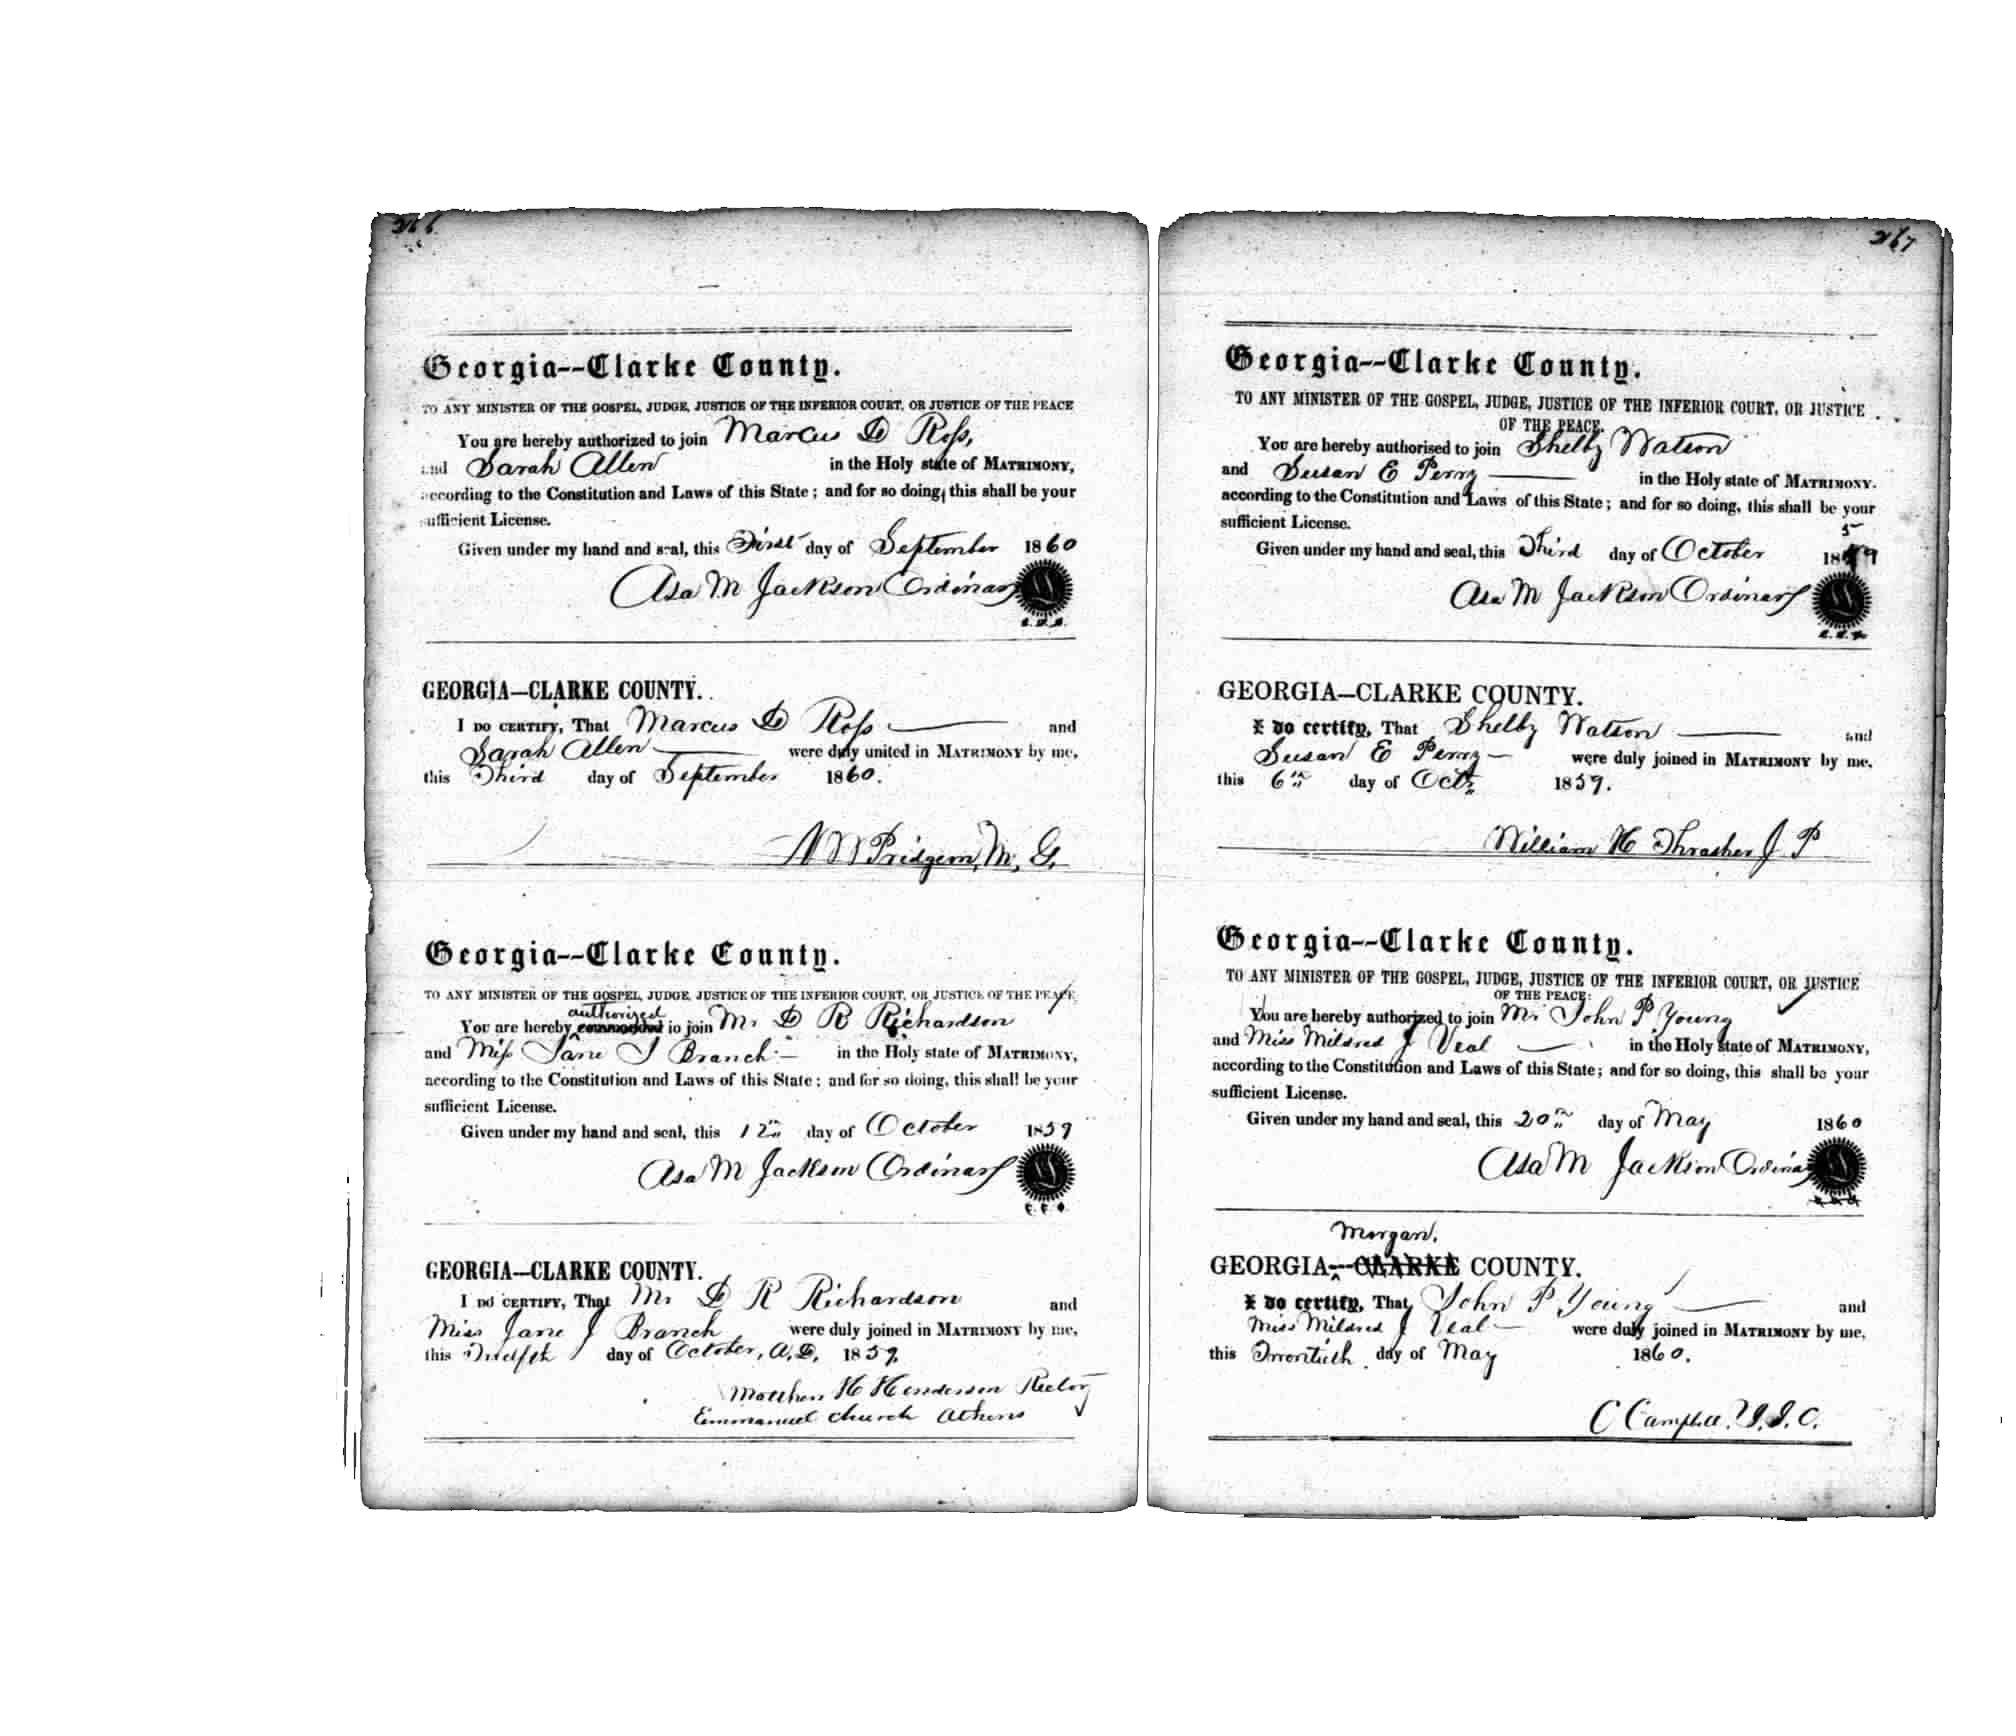 266
Georgia--Clarke County.
TO ANY MINISTER OF THE GOSPEL, JUDGE, JUSTICE OF THE INFERIOR COURT, OR JUSTICE OF THE PEACE
You are hereby authorized to join Marcus D Ross,
and Sarah Allen in the Holy state of MATRIMONY,
according to the Constitution and Laws of this State; and for so doing, this shall be your
sufficient License.
Given under my hand and seal, this First day of September 1860
Asa M Jackson Ordinary
GEORGIA—CLARKE COUNTY.
I DO CERTIFY, That Marcus D Ross and
Sarah Allen were duly united in MATRIMONY by me,
this Third day of September 1860.
N W Pridgeon, M, G,
Georgia--Clarke County.
TO ANY MINISTER OF THE GOSPEL, JUDGE, JUSTICE OF THE INFERIOR COURT, OR JUSTICE OF THE PEACE
authorized
You are hereby commanded to join Mr D R Richardson
and Miss Jane J Branch in the Holy state of MATRIMONY,
according to the Constitution and Laws of this State: and for so doing, this shall be your
sufficient License.
Given under my hand and seal, this 12th day of October 1859
Asa M Jackson Ordinary
GEORGIA—CLARKE COUNTY.
I DO CERTIFY, That Mr D R Richardson and
Miss Jane J Branch were duly joined in MATRIMONY by me,
this Twelfth day of October, A, D, 1859,
Matthew H Henderson Rector
Emmanuel church Athens
267
Georgia--Clarke County.
TO ANY MINISTER OF THE GOSPEL, JUDGE, JUSTICE OF THE INFERIOR COURT, OR JUSTICE
OF THE PEACE.
You are hereby authorised to join Shelby Watson
and Susan E Perry in the Holy state of MATRIMONY.
according to the Constitution and Laws of this State; and for so doing, this shall be your
sufficient License.
5
Given under my hand and seal, this Third day of October 1849
Asa M Jackson Ordinary
GEORGIA—CLARKE COUNTY.
I do certify, That Shelby Watson and
Susan E Perry were duly joined in MATRIMONY by me,
this 6th day of Oct. 1859.
William H Thrasher J P
Georgia--Clarke County.
TO ANY MINISTER OF THE GOSPEL, JUDGE, JUSTICE OF THE INFERIOR COURT, OR JUSTICE
OF THE PEACE:
You are hereby authorized to join Mr John P Young
and Miss Mildred J Veal in the Holy state of MATRIMONY,
according to the Constitution and Laws of this State; and for so doing, this shall be your
sufficient License.
Given under my hand and seal, this 20th day of May 1860
Asa M Jackson Ordina
Morgan.
GEORGIA—CLARKE COUNTY.
I do certify, That John P Young and
Miss Mildred J Veal were duly joined in MATRIMONY by me,
this Twentieth day of May 1860.
C Campbell, J. I. C.